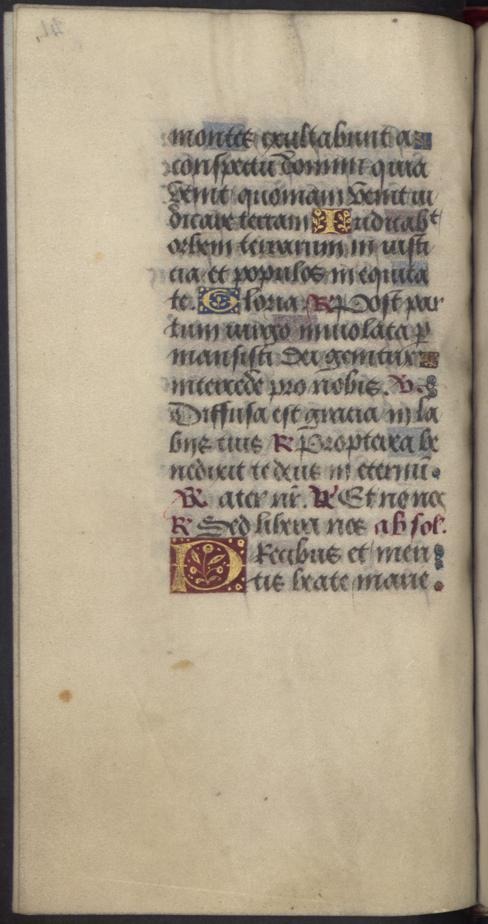 montes exultabunt a
conspectu domini quia
venit quoniam venit iu
dicare terram Iudicabt
orbem terrarum in iusti
cia et populos in equita
te. Gloria. R Post par
tum virgo inviolata p
mansisti dei genitrix
intercede pro nobis. V
Diffusa est gracia in la
biis tuis R Propterea be
nedixit te deus in eternū
ater nr. Et ne nos
R Sed libera nos absol.
PRecibus et meri
tis beate marie